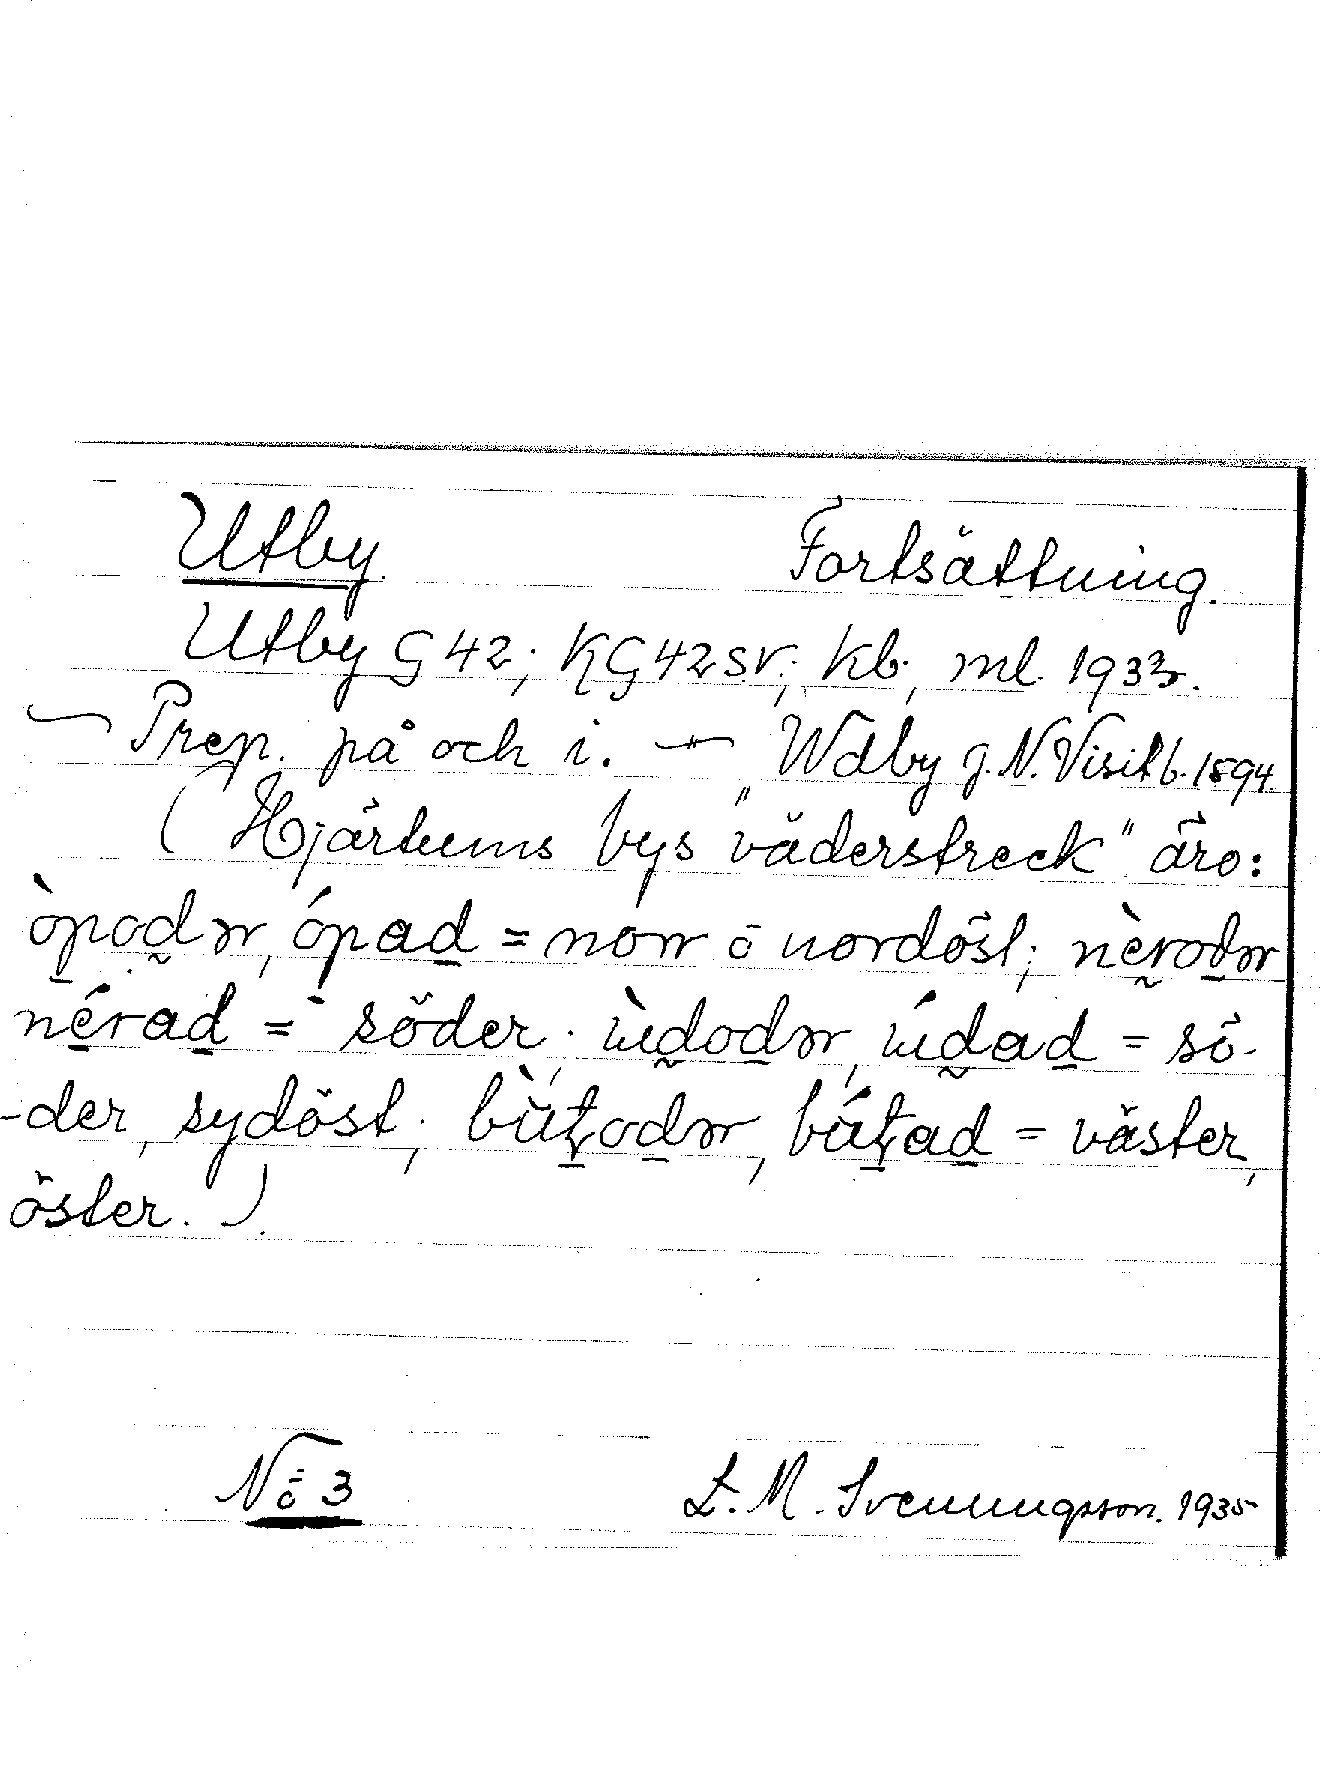 Utby. Fortsättning.
Utby G 42; KG 42 SV; kb, ml. 1933.
— Prep. på och i. — Wdby j. N. Visitb. 1594
(Hjärtums bys "väderstreck" äro:
òpodər, ópad = norr o nordöst; nèrodər
nérad = söder; ùdodər, údad = sö-
-der, sydöst; bùtodər, bútad = väster,
öster.).
No 3 L. M. Svenungsson. 1935